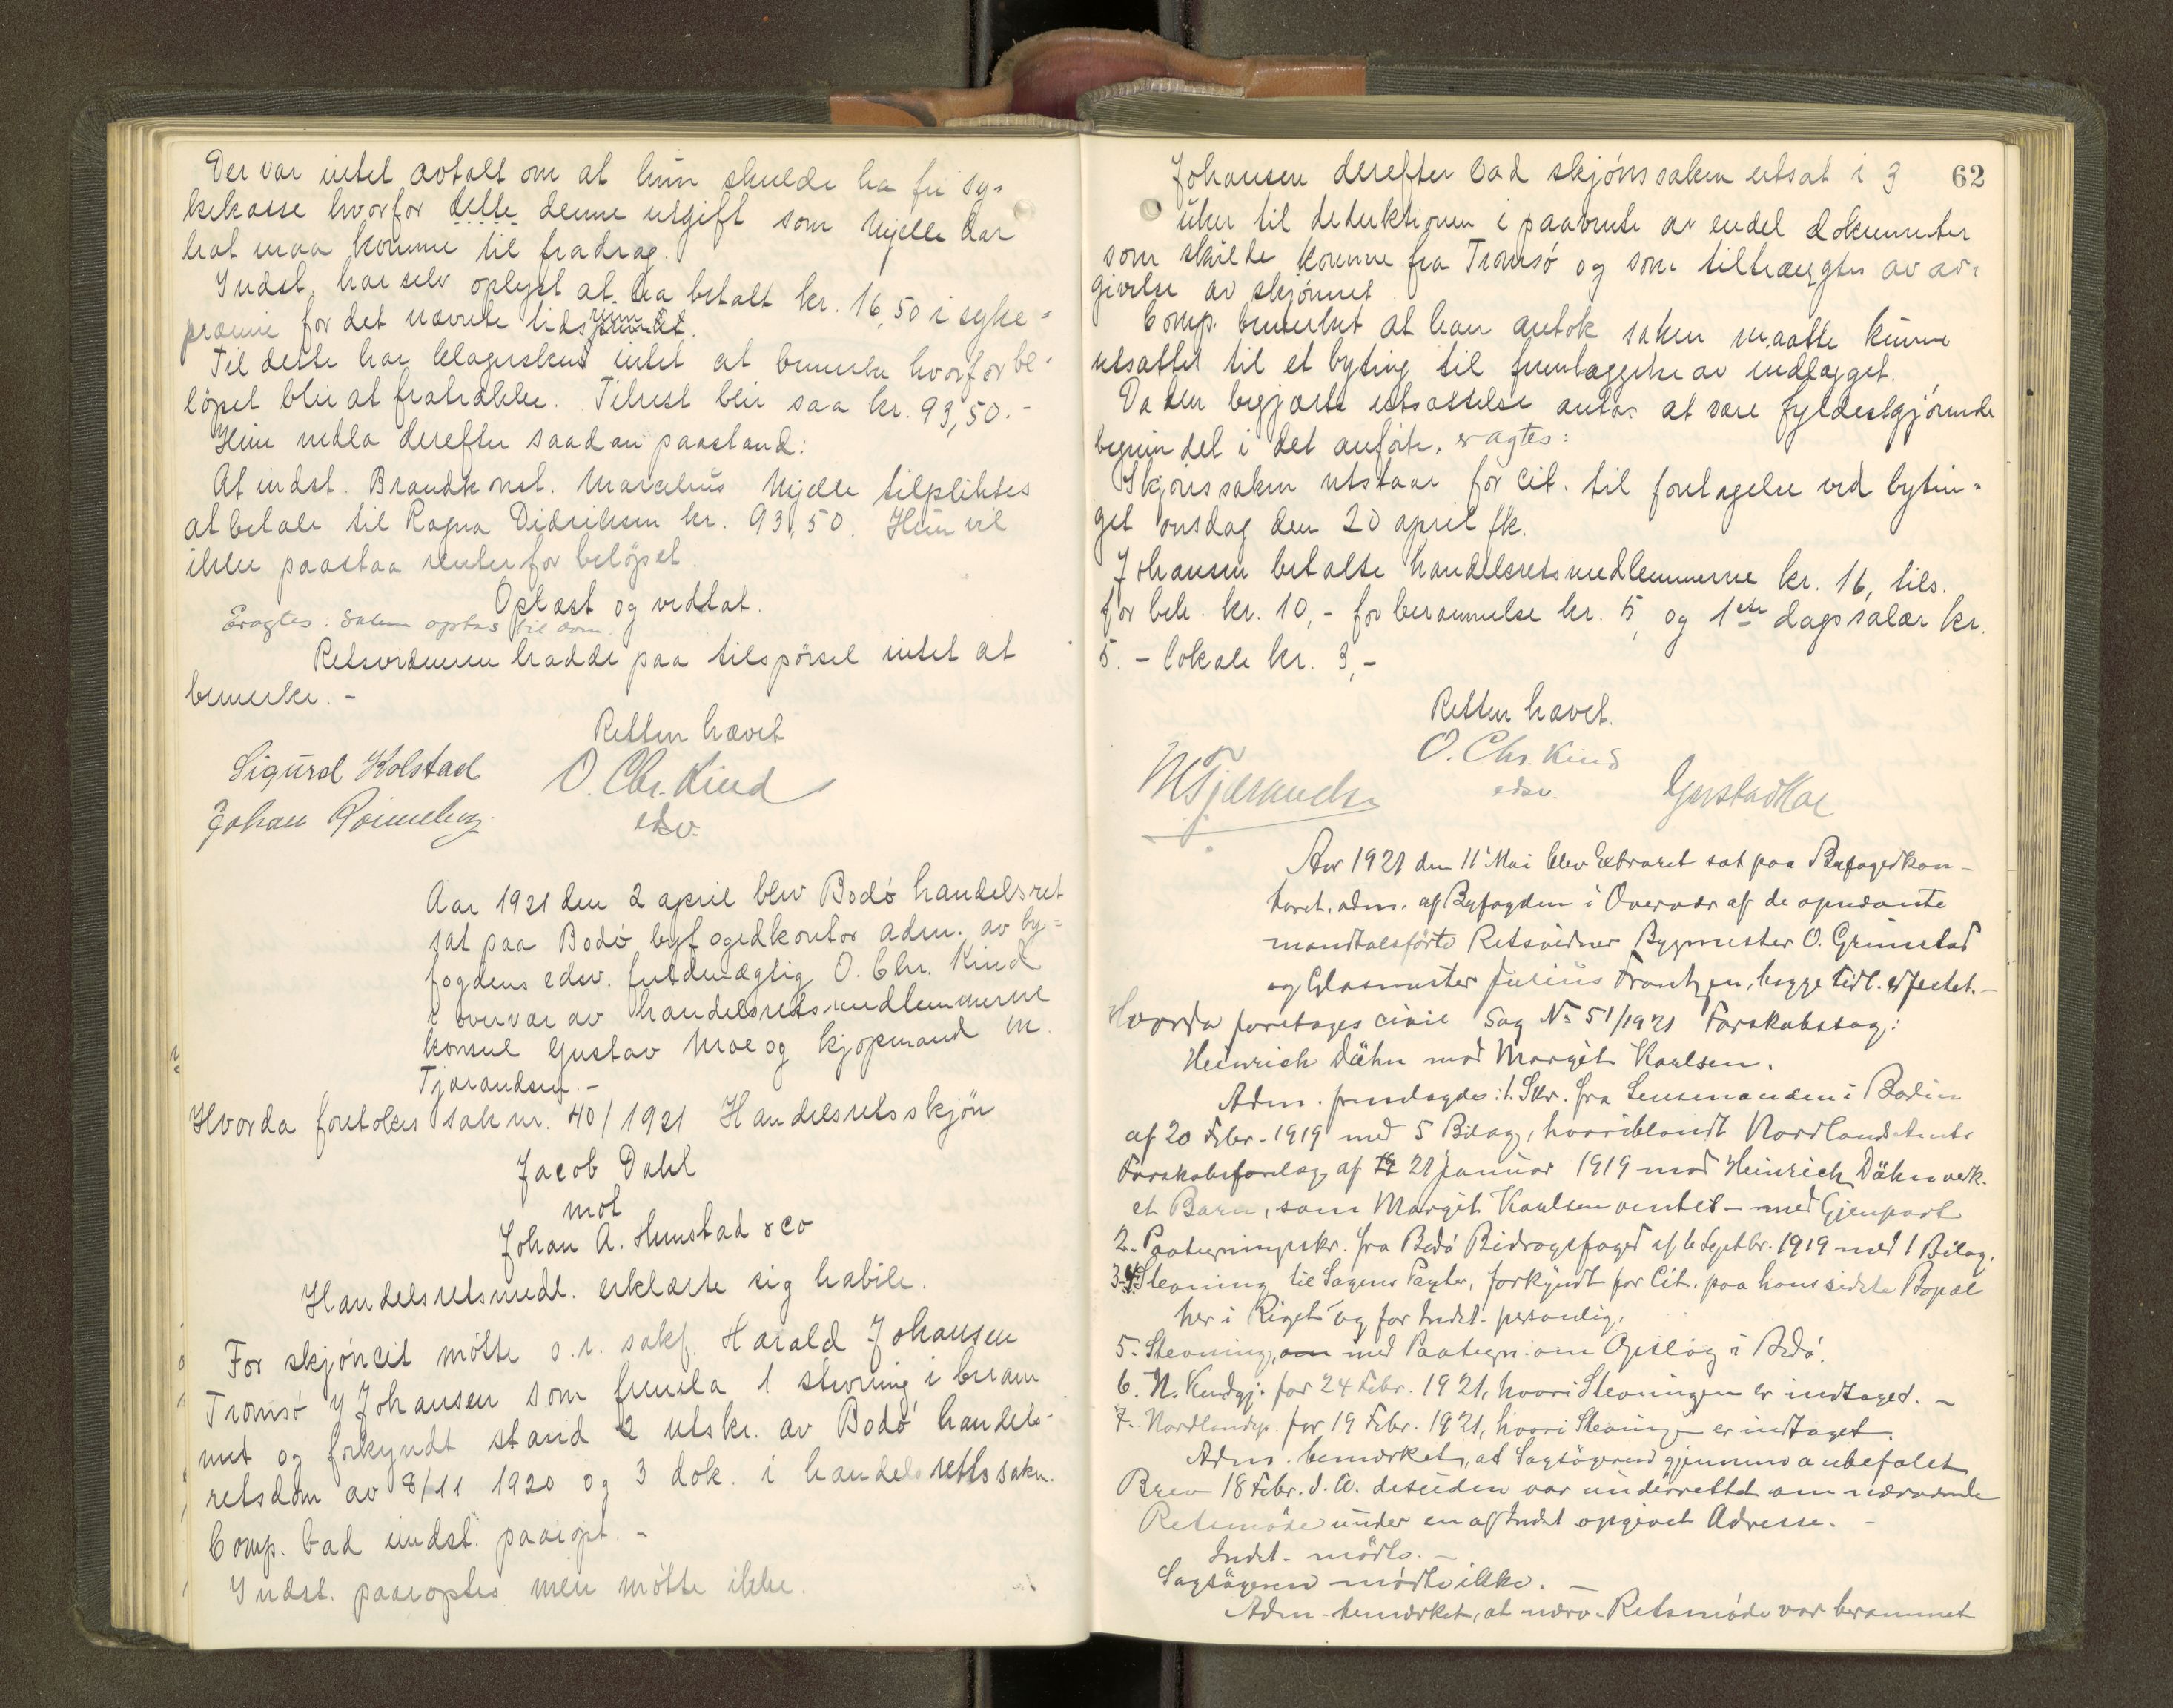 Der var intet avtalt om at hun skulde ha fri sy-
kekasse hvorfor dette denne utgift som Mjelle har
hat maa komme til fradrag.
Indst. har selv oplyst at ha betalt kr. 16,50 i syke-
præmie for det nævnte tidsrum
Til dette har klagersken intet at bemerke hvorfor be-
løpet blir at fratrække. Tilrest blir saa kr. 93,50.-
Hun nedla derefter saadan paastand:
At indst. Brandkonst. Marelius Mjelle tilpliktes
at betale til Ragna Didriksen kr. 93,50. Hun vil
ikke paastaa renter for beløpet.
Oplæst og vedtat.
Eragtes: Saken optas til dom.
Retsvidnerne hadde paa tilspørsel intet at
bemerke. -
Retten hævet
Sigurd Kolstad O. Chr. Kind
Johan edsv.
Aar 1921 den 2 april blev Bodø handelsret
sat paa Bodø byfogedkontor adm. av by-
fogdens edsv. fuldmægtig O. Chr. Kind
i overvær av handelsretsmedlemmerne
konsul Gustav Moe og kjøpmand M.
Tjærandsen. -
Hvorda foretokes sak nr. 40/1921 Handelsretsskjøn
Jacob Dahl
mot
Johan A. Hunstad & co
Handelsretsmedl. erklærte sig habile.
For skjøncit møtte o.r. sakf. Harald Johansen
Tromsø v/ Johansen som fremla 1 stevning i beram
met og forkyndt stand 2 utskr. av Bodø handels-
retsdom av 8/11 1920 og 3 dok. i handelsrettssaken.
Comp. bad indst. paaropt. -
Indst. paaroptes men møtte ikke.
62
Johansen derefter bad skjønssaken utsat i 3
uker til deduktionen i paavente av endel dokumenter
som skulde komme fra Tromsø og som tiltrængtes av av-
givelse av skjønnet.
Comp. bemerket at han antok saken maatte kunne
utsættes til et byting til fremlæggelse av indlægget.
Da den begjærte utsættelse antas at være fyldestgjørende
begrundet i det anførte, eragtes:
Skjønssaken utstaar for cit. til foretagelse ved bytin-
get onsdag den 20 april fk.
Johansen betalte handelsretsmedlemmerne kr. 16, tils.
for bek. kr. 10,- for berammelse kr. 5, og 1ste dags salær kr.
5. - lokale kr. 3,-
Retten hævet.
O. Chr. Kind
M Tjærandsen edsv. Gustav Moe
Aar 1921 den 11' Mai blev Extraret sat paa Byfogedkon-
toret, adm. af Byfogden i Overvær af de opnævnte
mandtalsførte Retsvidner Bygmester O. Grimstad
og Glasmester Julius Frantzen, begge tidl. edfestet. -
Hvorda foretages civil Sag No 51/1921 Farskabssag:
Heinrich Dähn mod Margit Karlsen.
Adm. fremlagde: 1. Skr. fra Lensmanden i Bodin
af 20 Febr. 1919 med 5 Bilag, hvoriblandt Nordlands Amts
Farskabsforelæg af 21 Januar 1919 mod Heinrich Dähn vedk.
et Barn, som Margit Karlsen ventet - med Gjenpart
2. Paategningsskr. fra Bodø Bidragsfoged af 6 Septbr. 1919 med 1 Bilag.
3-4. Stevning til Sagens Parter, forkyndt for Cit. paa hans sidste Bopæl
her i Riget og for Indst. personlig.
5. Stevning, med Paategn. om Opslag i Bodø.
6. N. Kundgj. for 24 Febr. 1921, hvori Stevningen er indtaget. -
7. Nordlandsp. for 19 Febr. 1921, hvori Stevningen er indtaget.
Adm. bemærket, at Sagsøgeren gjennem anbefalet
Brev 18 Febr. d. A. desuden var underrettet om nærværende
Retsmøde under en af Indst opgivet Adresse. -
Indst. mødte. -
Sagsøgeren mødte ikke. -
Adm. bemærket, at nærv. Retsmøde var berammet